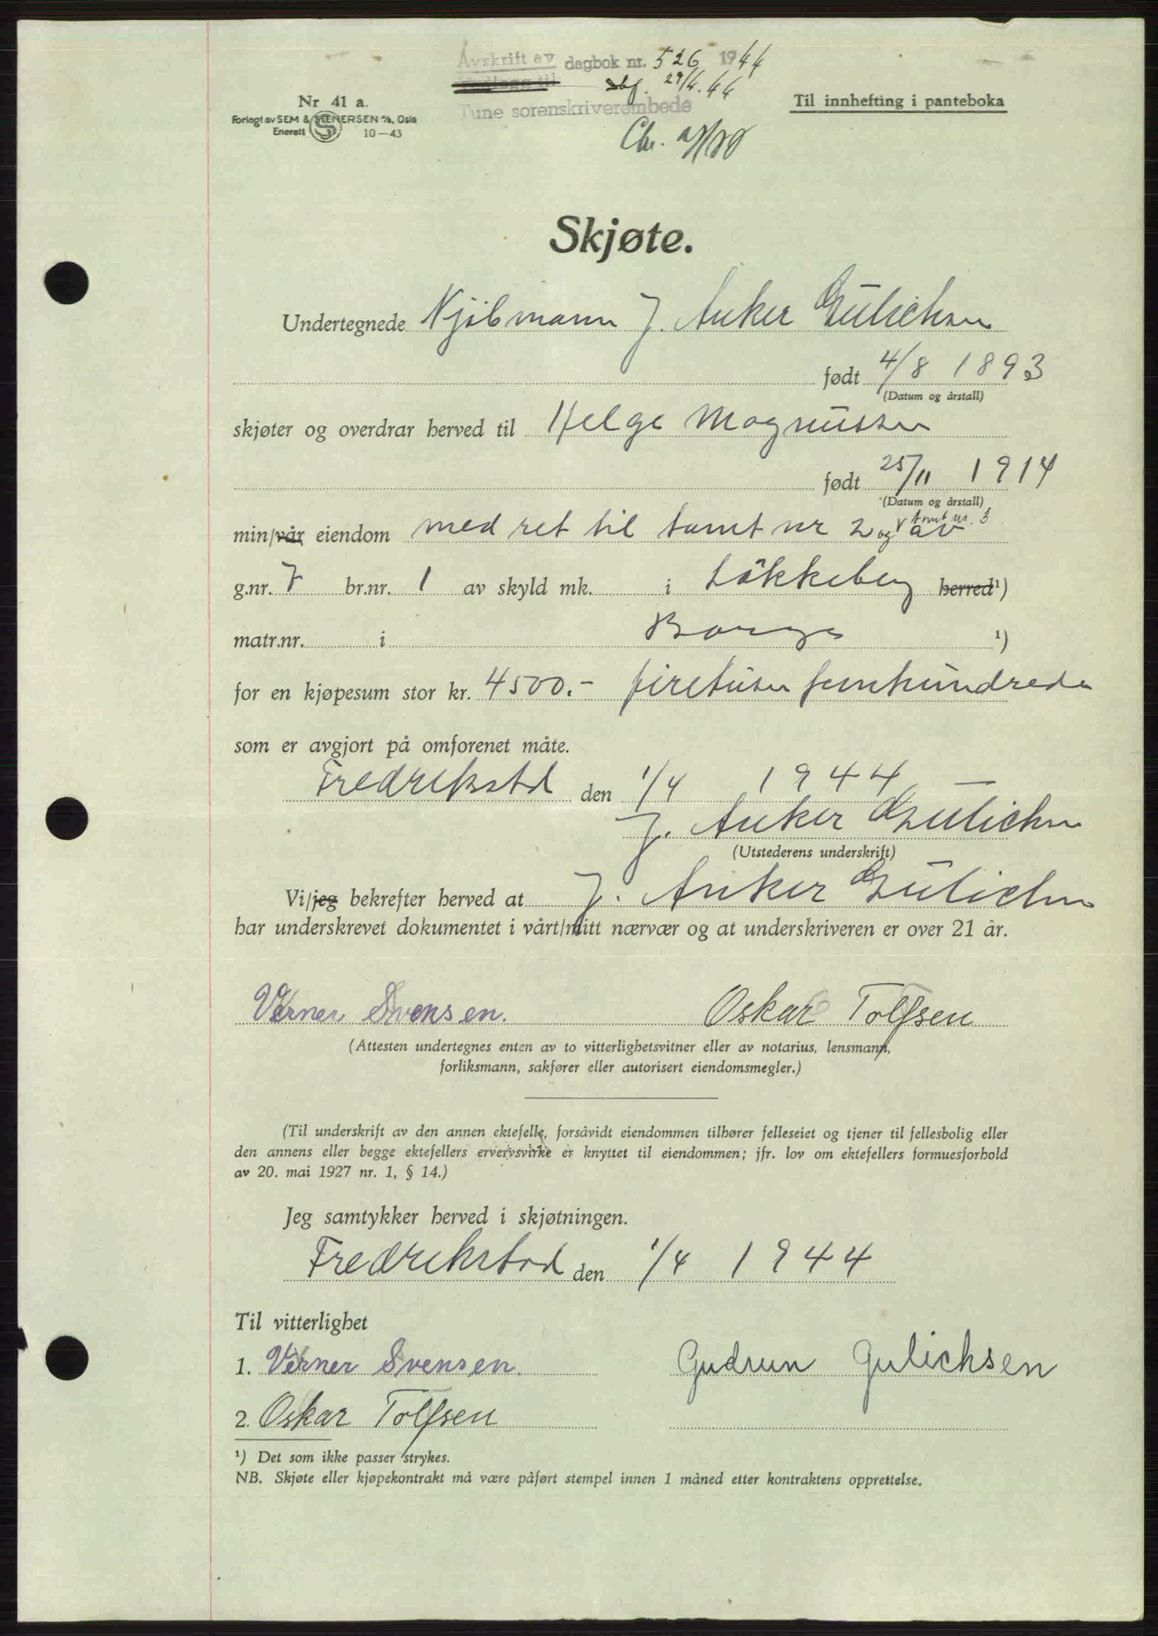 Avskrift av dagbok nr. 526 1944
29/4.44
Tune sorenskriverembede
Nr 41 a.
Forlagt av SEM & STENERSEN A/S, Oslo
Enerett 10-43
Til innhefting i panteboka
Skjøte.
Undertegnede Kjöbmann J. Anker Gulichsen
født 4/8 1893
(Datum og årstall)
skjøter og overdrar herved til Helge Magnussen
født 25/11 1914
(Datum og årstall)
min/vår eiendom med ret til tomt nr 2 og tomt nr. 3 av
g.nr. 7 br.nr. 1 av skyld mk. i Lökkeberg herred¹)
matr.nr. i Borge ¹)
for en kjøpesum stor kr. 4500.- firetusen femhundrede
som er avgjort på omforenet måte.
Fredrikstd den 1/4 1944
J. Anker Gulichsen
(Utstederens underskrift)
Vi/jeg bekrefter herved at J. Anker Gulichsen
har underskrevet dokumentet i vårt/mitt nærvær og at underskriveren er over 21 år.
Verner Svensen. Oskar Tolfsen
(Attesten undertegnes enten av to vitterlighetsvitner eller av notarius, lensmann,
forliksmann, sakfører eller autorisert eiendomsmegler.)
(Til underskrift av den annen ektefelle, forsåvidt eiendommen tilhører felleseiet og tjener til fellesbolig eller
den annens eller begge ektefellers ervervsvirke er knyttet til eiendommen; jfr. lov om ektefellers formuesforhold
av 20. mai 1927 nr. 1, § 14.)
Jeg samtykker herved i skjøtningen.
Fredrikstad den 1/4 1944
Til vitterlighet
1. Verner Svensen. Gudrun Gulichsen
2. Oskar Tolfsen
¹) Det som ikke passer strykes.
NB. Skjøte eller kjøpekontrakt må være påført stempel innen 1 måned etter kontraktens opprettelse.